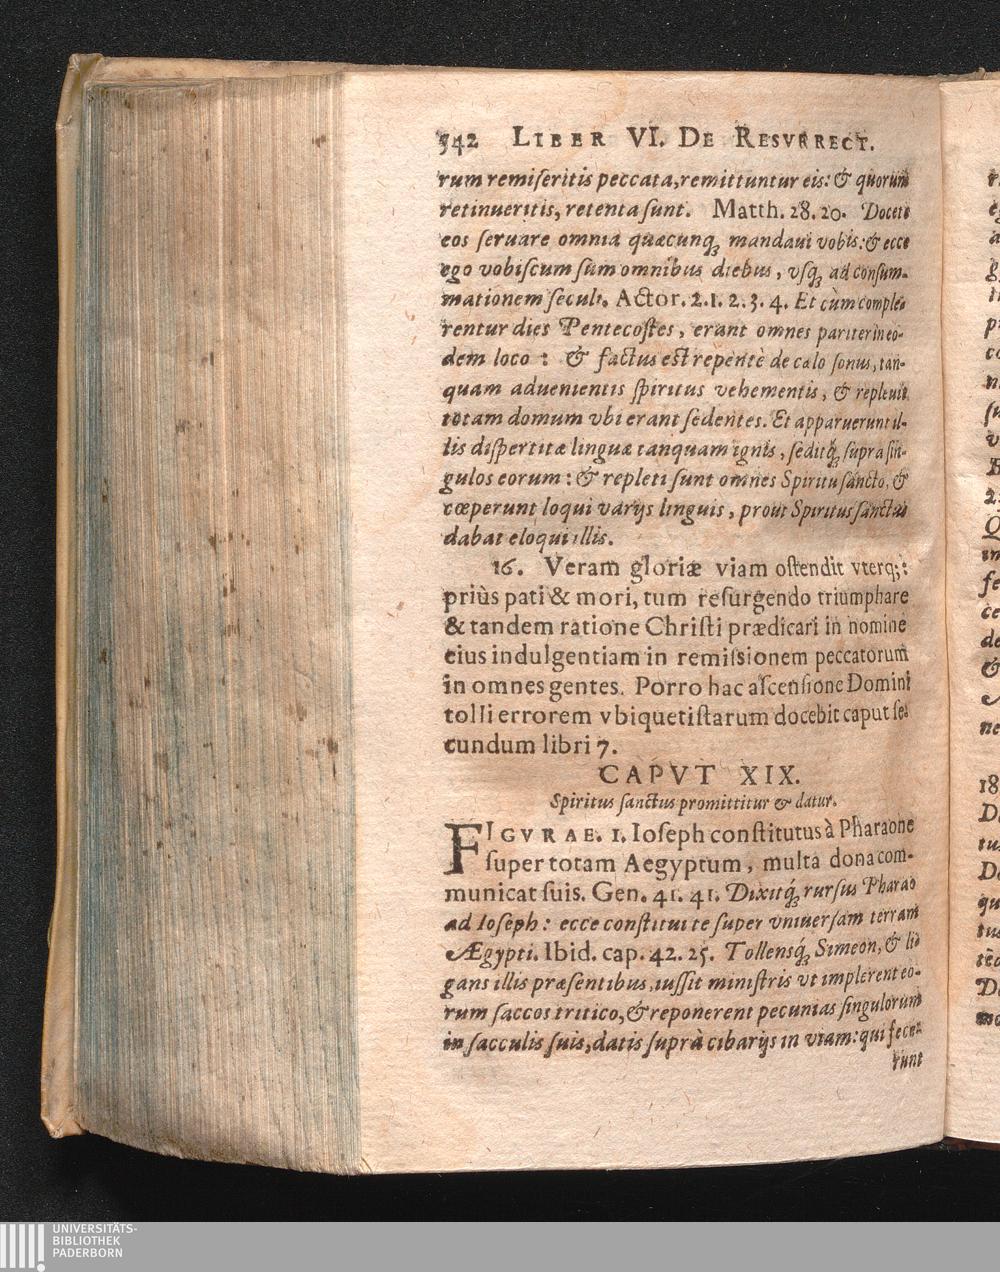 542 LIBER VI. DE RESVRRECT.
rum remiseritis peccata, remittuntur eis: & quorum
retinueritis, retenta sunt. Matth. 28. 20. Docete
eos seruare omnia quæcunq; mandaui vobis: & ecce
ego vobiscum sum omnibus diebus, vsq; ad consum-
mationem seculi. Actor. 2. 1. 2. 3. 4. Et cùm comple-
rentur dies Pentecostes, erant omnes pariter in eo-
dem loco: & factus est repentè de cælo sonus, tan-
quam aduenientis spiritus vehementis, & repleuit
totam domum vbi erant sedentes. Et apparuerunt il-
lis dispertitæ linguæ tanquam ignis, seditq; supra sin-
gulos eorum: & repleti sunt omnes Spiritu sancto, &
cœperunt loqui varijs linguis, prout Spiritus sanctus
dabat eloqui illis.
16. Veram gloriæ viam ostendit vterq;:
priùs pati & mori, tum resurgendo triumphare
& tandem ratione Christi prædicari in nomine
eius indulgentiam in remissionem peccatorum
in omnes gentes. Porro hac ascensione Domini
tolli errorem vbiquetistarum docebit caput se-
cundum libri 7.
CAPVT XIX.
Spiritus sanctus promittitur & datur.
FIGVRAE. 1. Ioseph constitutus à Pharaone
super totam Aegyptum, multa dona com-
municat suis. Gen. 41. 41. Dixitq; rursus Pharao
ad Ioseph: ecce constitui te super vniuersam terram
Ægypti. Ibid. cap. 42. 25. Tollensq; Simeon, & li-
gans illis præsentibus, iussit ministris vt implerent eo-
rum saccos tritico, & reponerent pecunias singulorum
in sacculis suis, datis suprà cibarijs in viam: qui fece-
runt
UNIVERSITÄTS-
BIBLIOTHEK
PADERBORN